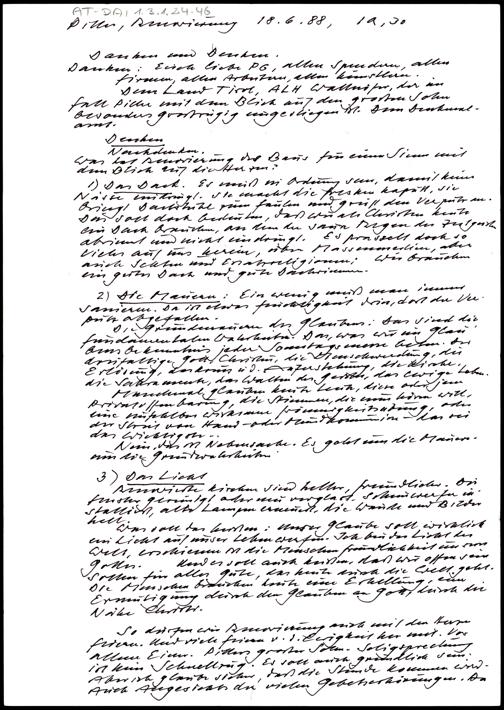 AT-DA, 1.3.1.24-46
Piller, Renovierung 18.6.88, 10,30
Danken und Denken.
Danken: Euch liebe PG, allen Spendern, allen
Firmen, allen Arbeitern, allen Künstlern.
Dem Land Tirol, ALH Wallnöfer, der im
Fall Piller mit dem Blick auf den grossen Sohn
besonders grosszügig eingestiegen ist. Dem Denkmal-
amt.
Denken
Nachdenken.
Was hat Renovierung des Baus für einen Sinn mit
dem Blick auf die Herzen?
1) Das Dach. Es muß in Ordnung sein, damit keine
Nässe eindringt. Sie macht die Fresken kaputt, sie
bringt Dachstühle zum faulen und greift den Verputz an.
Das soll doch bedeuten, daß wir als Christen heute
ein Dach brauchen, an dem der saure Regen des Zeitgeists
abrinnt und nicht eindringt. Es prasselt doch so
vieles auf uns herein, über Massenmedien, aber
auch Sekten und Ersatzreligionen: wir brauchen
ein gutes Dach und gute Dachrinnen.
2) Die Mauern: Ein wenig muß man immer
sanieren. Da ist etwas Feuchtigkeit drin, dort der Ver-
putz abgefallen.
Die Grundmauern des Glaubens: Das sind die
fundamentalen Wahrheiten. Das, was wir im Glau-
bensbekenntnis jeden Sonntag beten. Der
dreifaltige Gott, Christus, die Menschwerdung, die
Erlösung, Auferstehung, die Kirche,
die Sakramente, das Walten des Geistes, das ewige Leben.
Manchmal glauben heute Leute, diese oder jene
Privatoffenbarung, die Stimmen, die man hören will,
eine
der Streit von Hand- oder Mundkommunion das sei
das Wichtigste..
Nein, das ist Nebensache. Es geht um die Mauern
um die Grundwahrheiten.
3) Das Licht
Renovierte Kirchen sind heller, freundlicher. Die
Fenster gereinigt oder neu verglast, Scheinwerfer in-
stalliert, alte Lampen erneuert, die Wände und Bilder
hell.
Was soll das heissen: Unser Glaube soll wirklich
ein Licht auf unser Leben werfen. Ich bin das Licht der
Welt, erschienen ist die Menschenfreundlichkeit unseres
Gottes. Und es soll auch heißen, daß wir offen sein
sollen für alles Gute, das heute durch die Welt geht.
Die Menschen brauchen heute eine Erhellung, eine
Ermutigung durch den Glauben an Gott, durch die
Nähe Christi.
So dürfen wir Renovierung auch mit den Herzen
feiern. Und viele feiern v. d. Ewigkeit her mit. Vor
allem Einer. Pillers grosser Sohn. Seligsprechung
ist kein Schnellzug. Es soll auch gründlich sein.
Aber ich glaube sicher, daß die Stunde kommen wird.
Auch angesichts der vielen Gebetserhörungen. Da